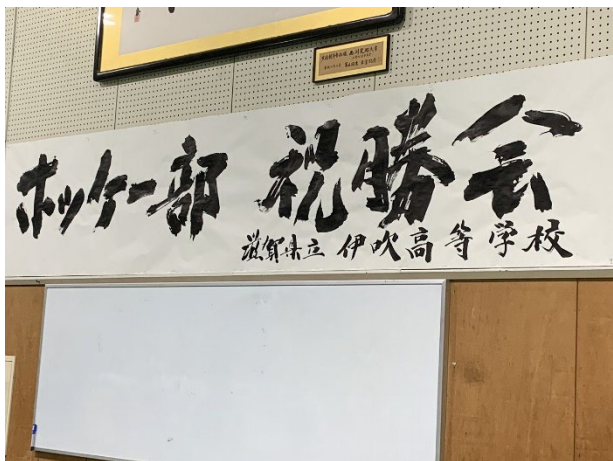 ホッケー部 祝勝会
滋賀県立 伊吹高等学校